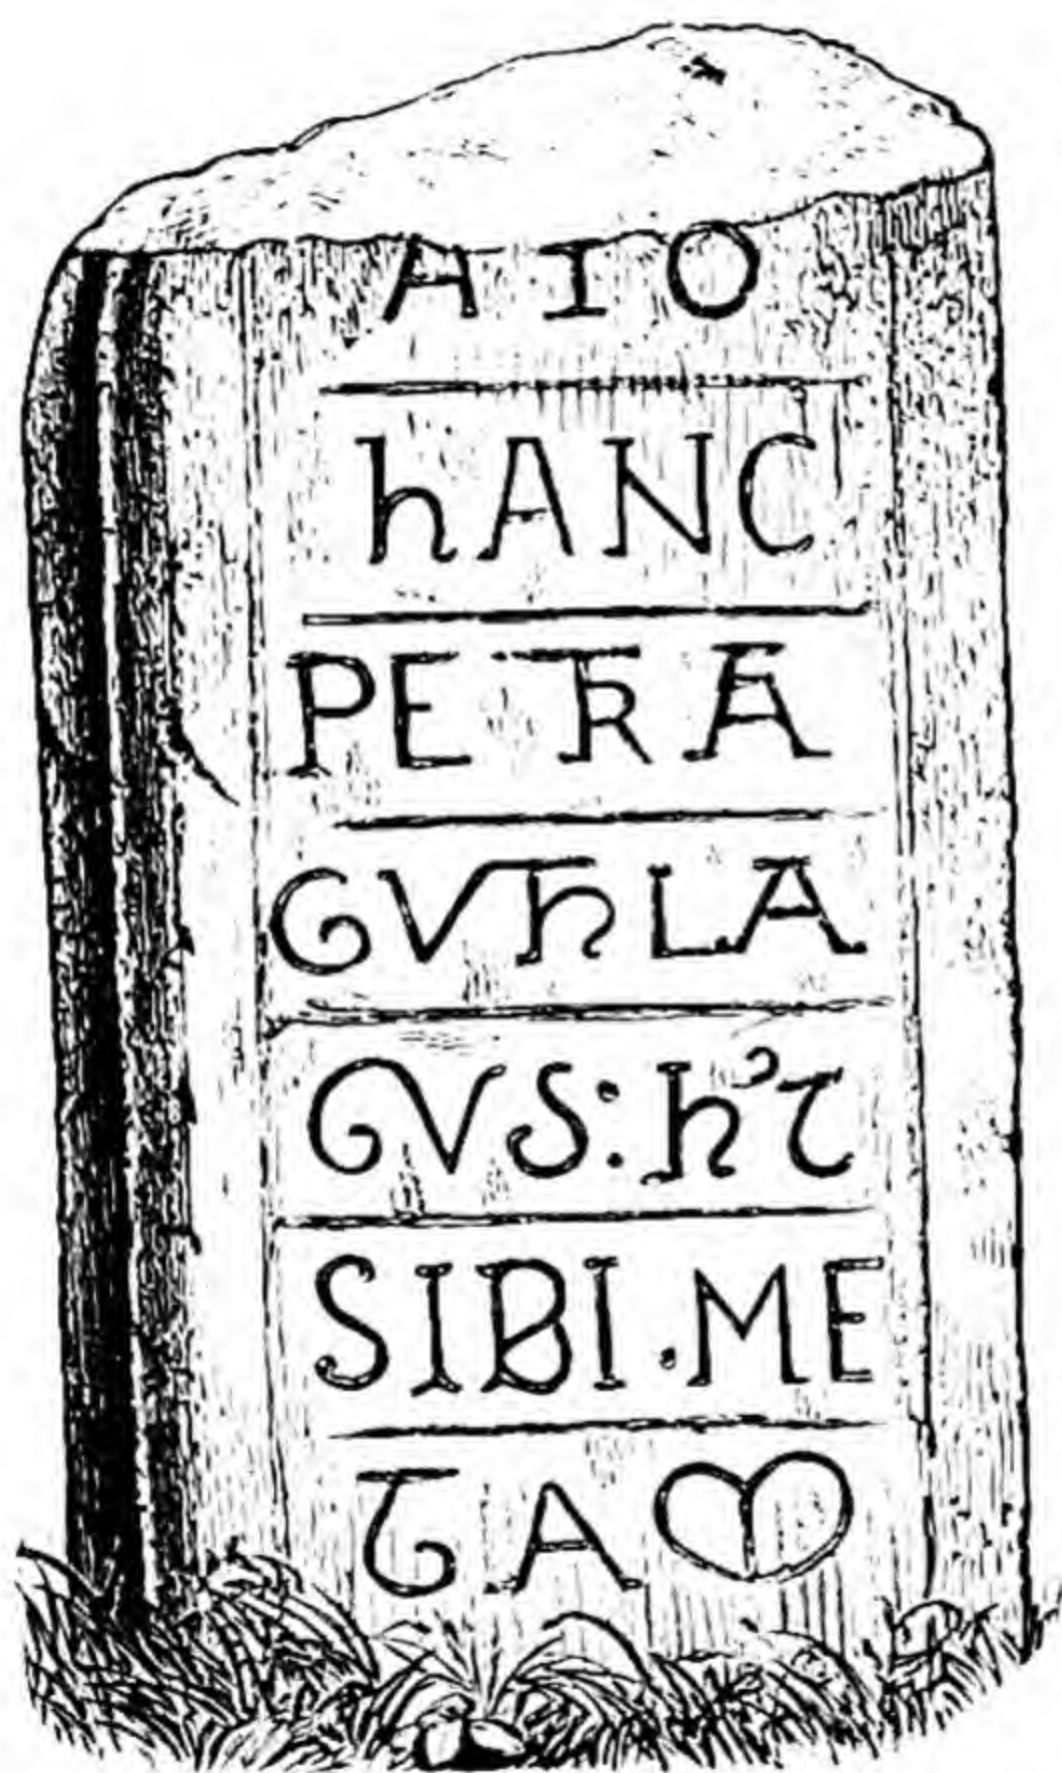 AIO
hANC
PETRA
GVThLA
GVS: h't
SIBI.ME
TAM